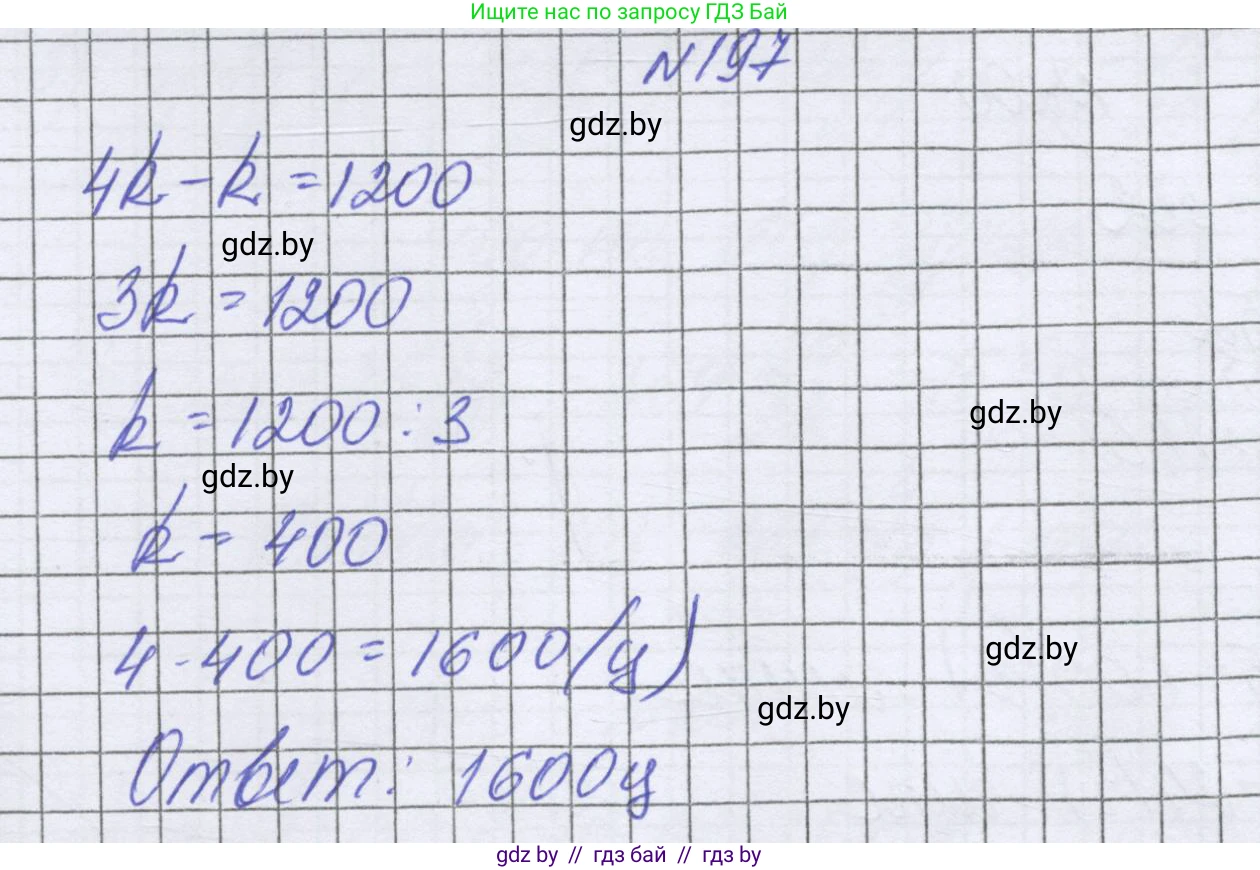 Ищите нас по запросу ГДЗ Бай
N197
gdz.by
4k - k = 1200
gdz.by
3k = 1200
k = 1200 : 3
gdz.by
gdz.by
k = 400
4 · 400 = 1600 (ц)
gdz.by
gdz.by
Ответ: 1600ц
gdz by // гдз бай // гдз by